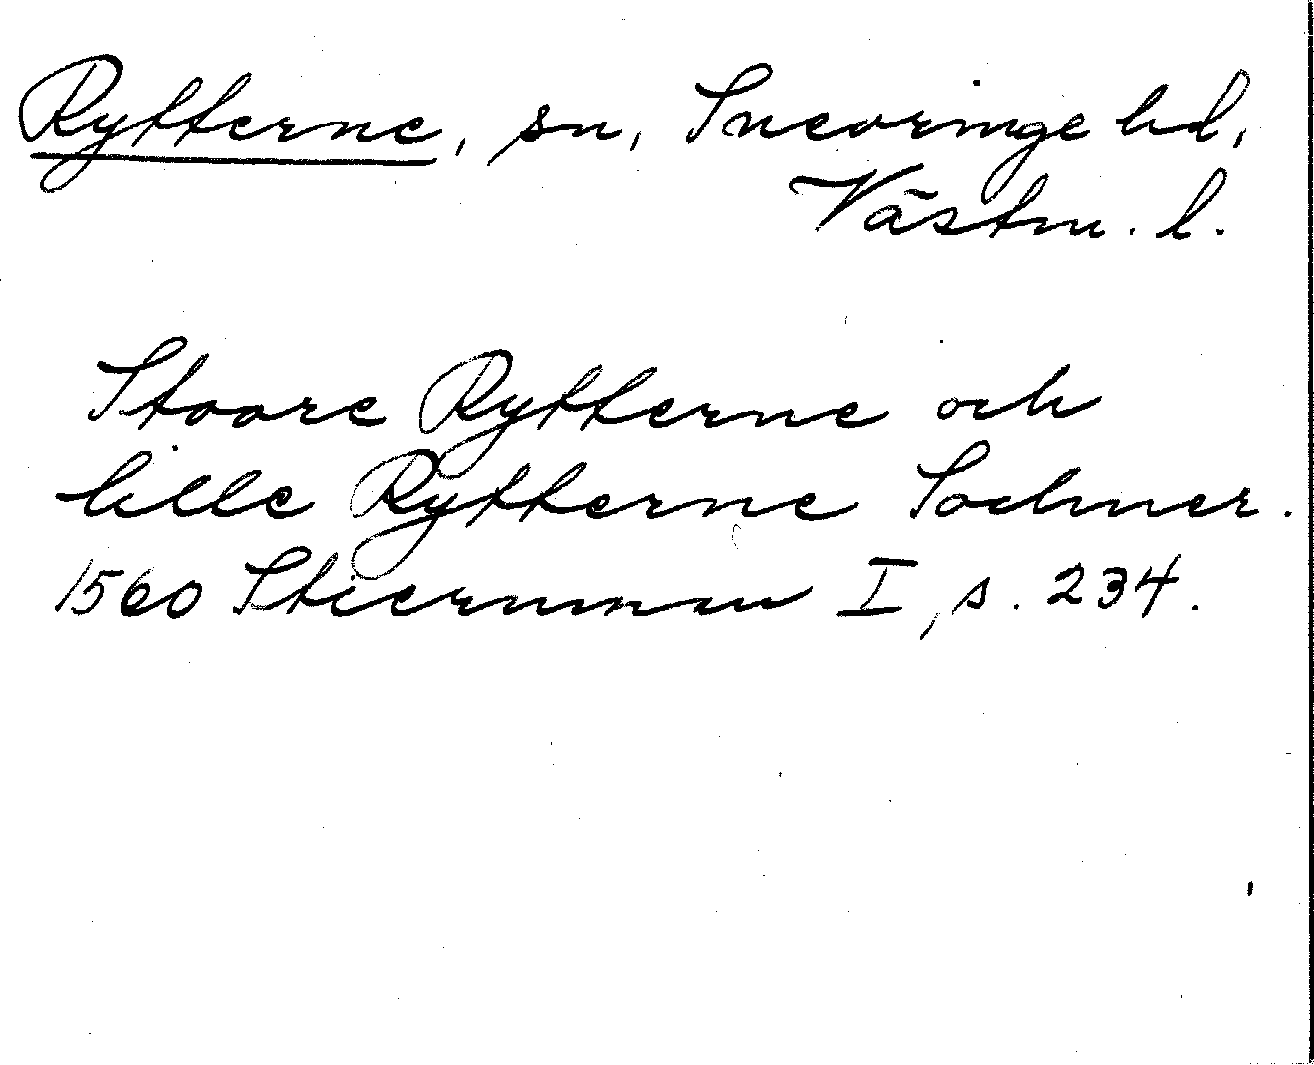 Rytterne, sn, Snevringe hd,
Västm. l.
Stoore Rytterne och
lille Rytterne Sochner.
1560 Stiernman I, s. 234.